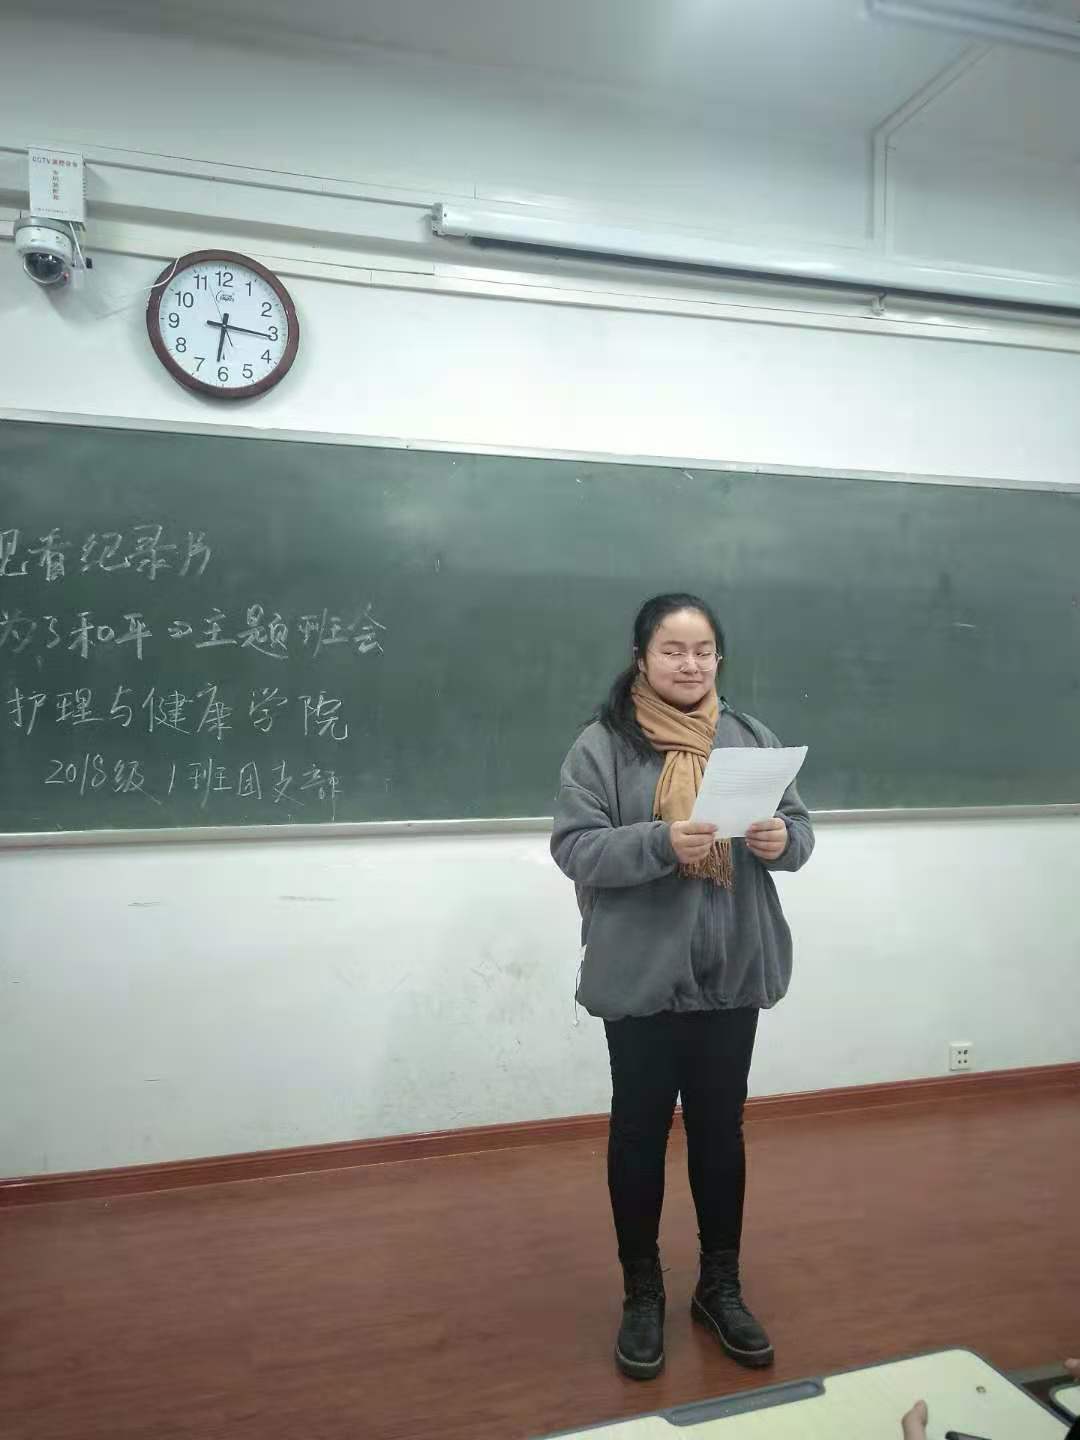 CCTV
12
1
2
3
4
5
6
7
8
9
10
11
观看纪录片
为了和平》主题班会
护理与健康学院
2018级1班团支部